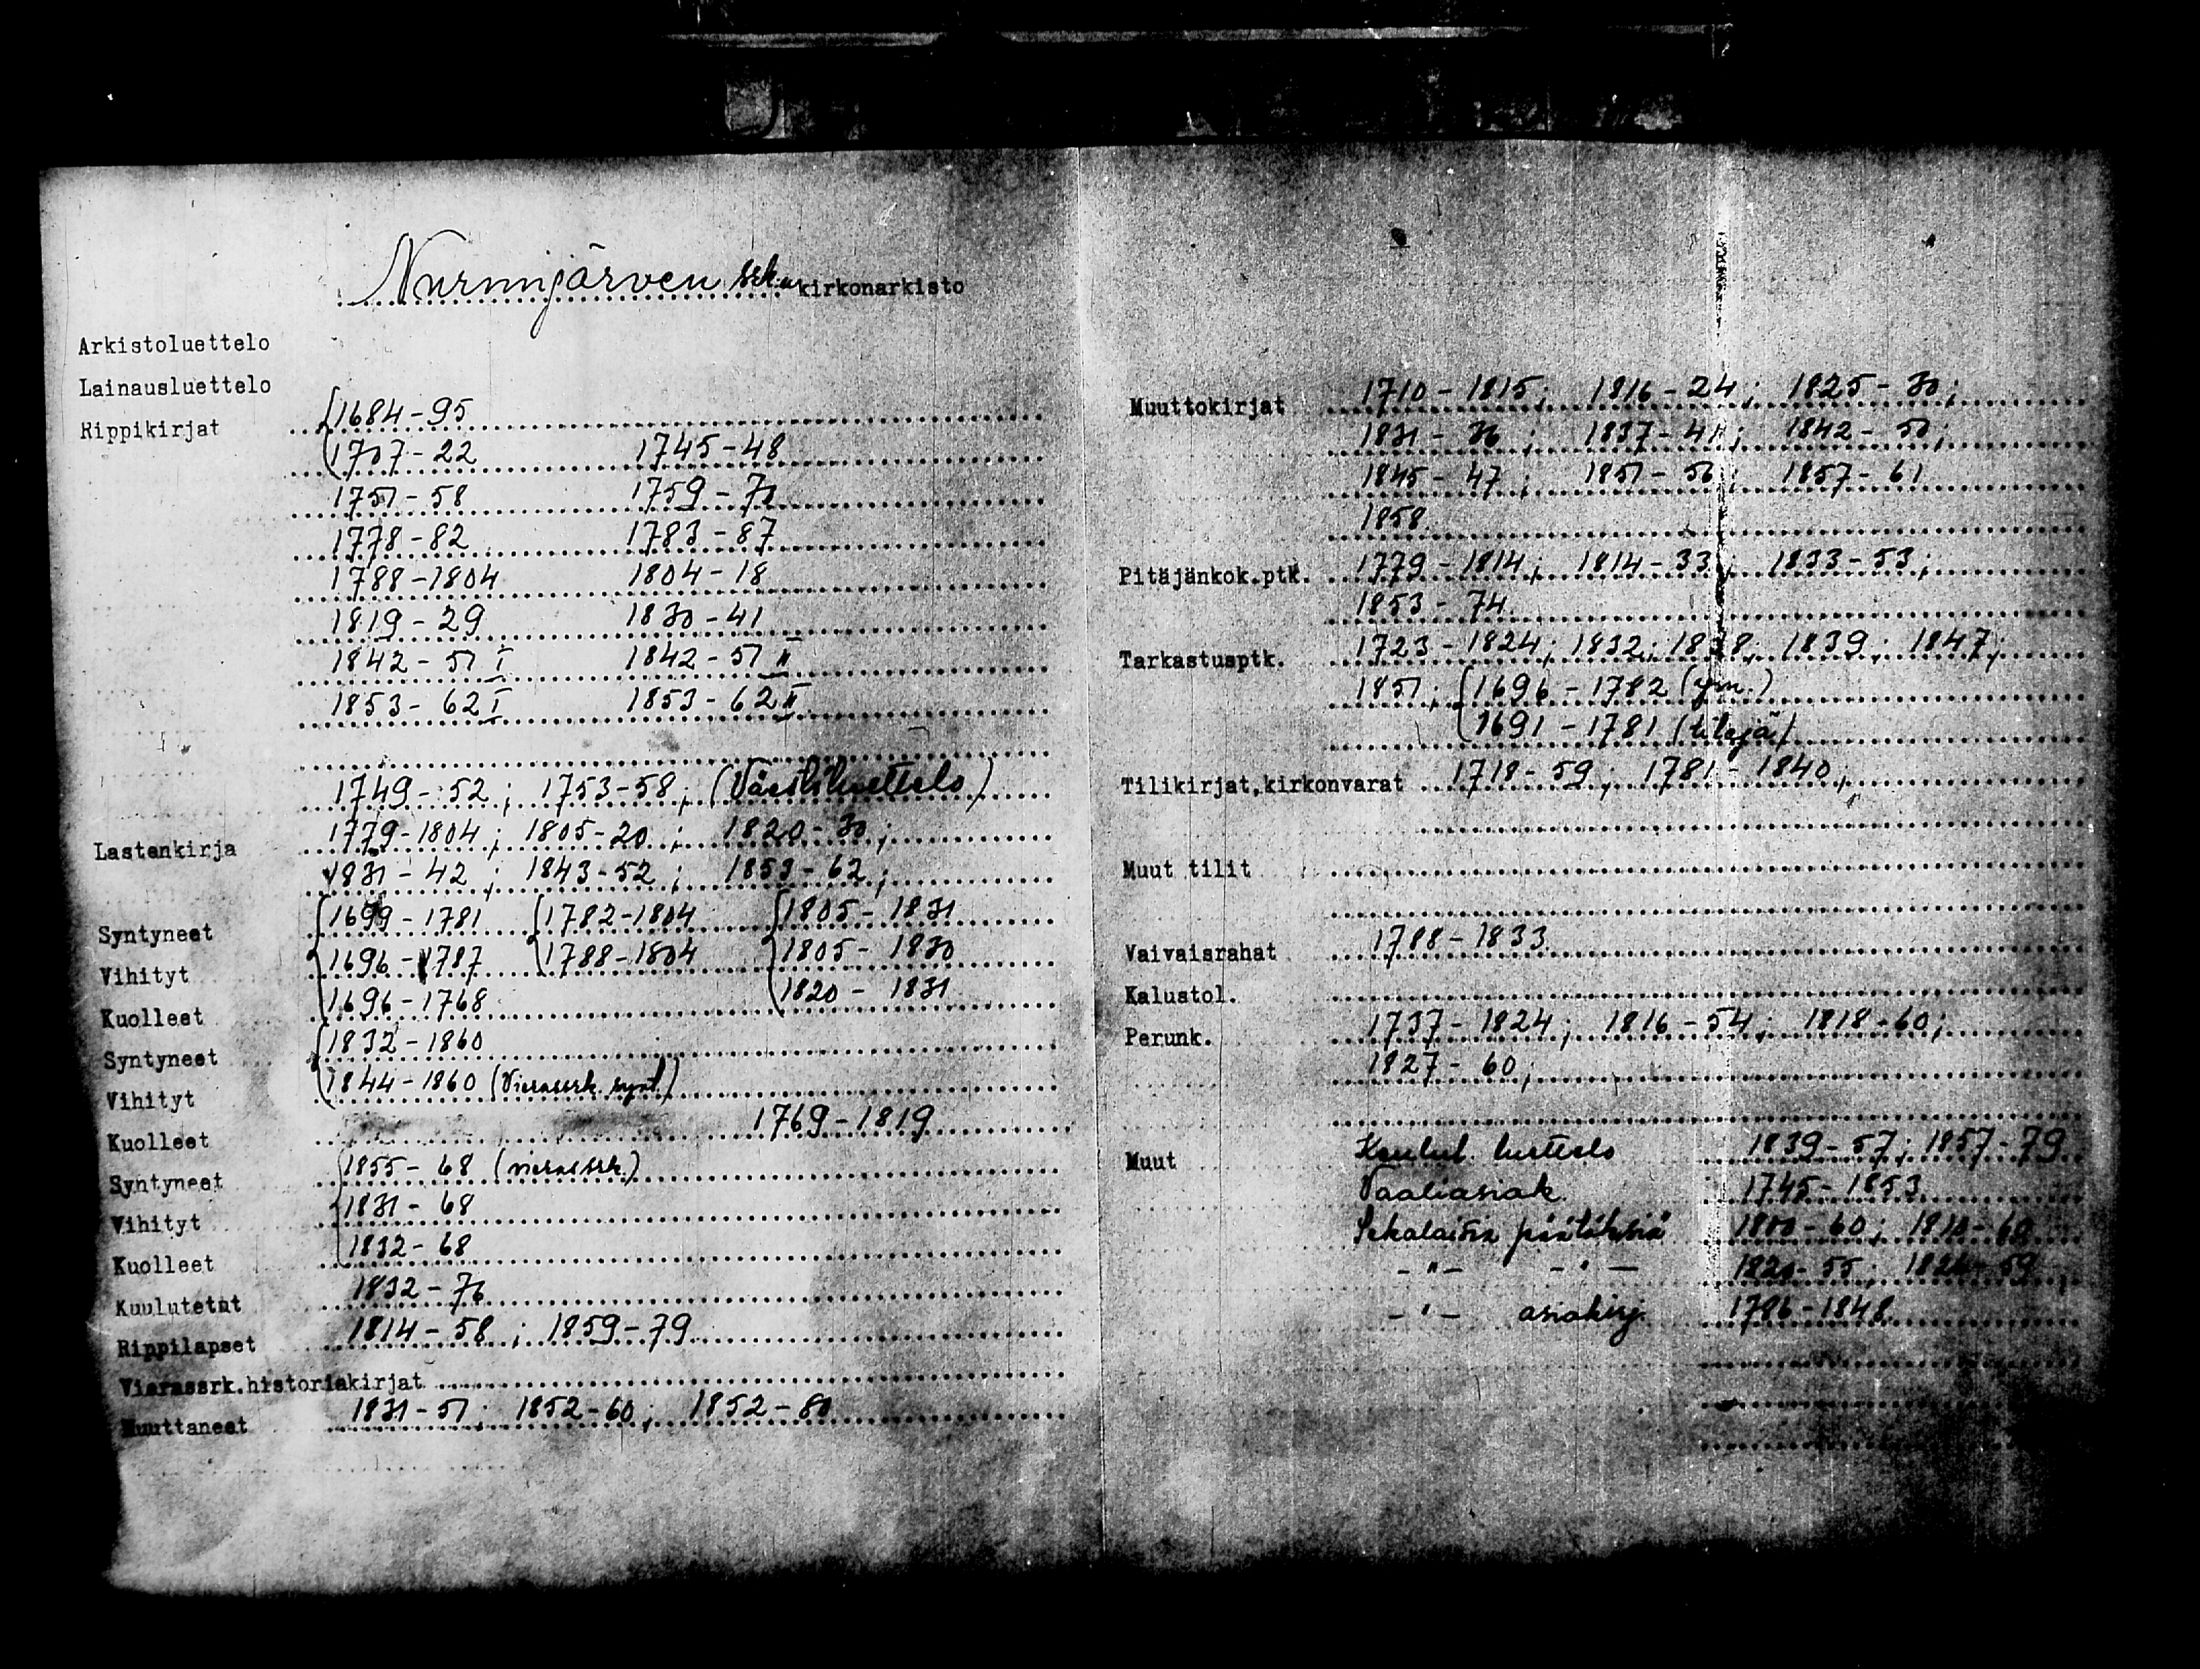 Nurmijärven srk:n kirkonarkisto
Arkistoluettelo
Lainausluettelo
Rippikirjat 1684-95
1707-22 1745-48
1751-58 1759-72
1778-82 1783-87
1788-1804 1804-18
1819-29 1830-41
1842-51 I 1842-51 II
1853-62 I 1853-62 II
1749-52; 1753-58; (Väestöluettelo)
Lastenkirja 1779-1804; 1805-20; 1820-30;
1831-42; 1843-52; 1853-62;
Syntyneet 1699-1781 1782-1804 1805-1831
Vihityt 1696-1787 1788-1804 1805-1830
Kuolleet 1696-1768 1820-1831
Syntyneet 1832-1860
Vihityt 1844-1860 (Vierassrk. synt.)
Kuolleet 1769-1819
Syntyneet 1855-68 (vierassrk.)
Vihityt 1831-68
Kuolleet 1832-68
Kuulutetut 1832-76
Rippilapset 1814-58; 1859-79
Vierassrk.historiakirjat
Muuttaneet 1831-51; 1852-60; 1852-80
Muuttokirjat 1710-1815; 1816-24; 1825-30;
1831-36; 1837-41; 1842-50;
1845-47; 1851-56; 1857-61
1858
Pitäjänkok.ptk. 1779-1814; 1814-33; 1833-53;
1853-74
Tarkastusptk. 1723-1824; 1832; 1838; 1839; 1847;
1851; 1696-1782 (ym.)
1691-1781 (tilejä)
Tilikirjat,kirkonvarat 1718-59; 1781-1840;
Muut tilit
Vaivaisrahat 1788-1833
Kalustol.
Perunk. 1737-1824; 1816-54; 1818-60;
1827-60;
Muut Kuulut. luettelo 1839-57; 1857-79
Vaaliasiak. 1745-1853
Sekalaisia päätöksiä 1800-60; 1810-60
-"- -"- 1820-55; 1826-59
-"- asiakirj. 1786-1848